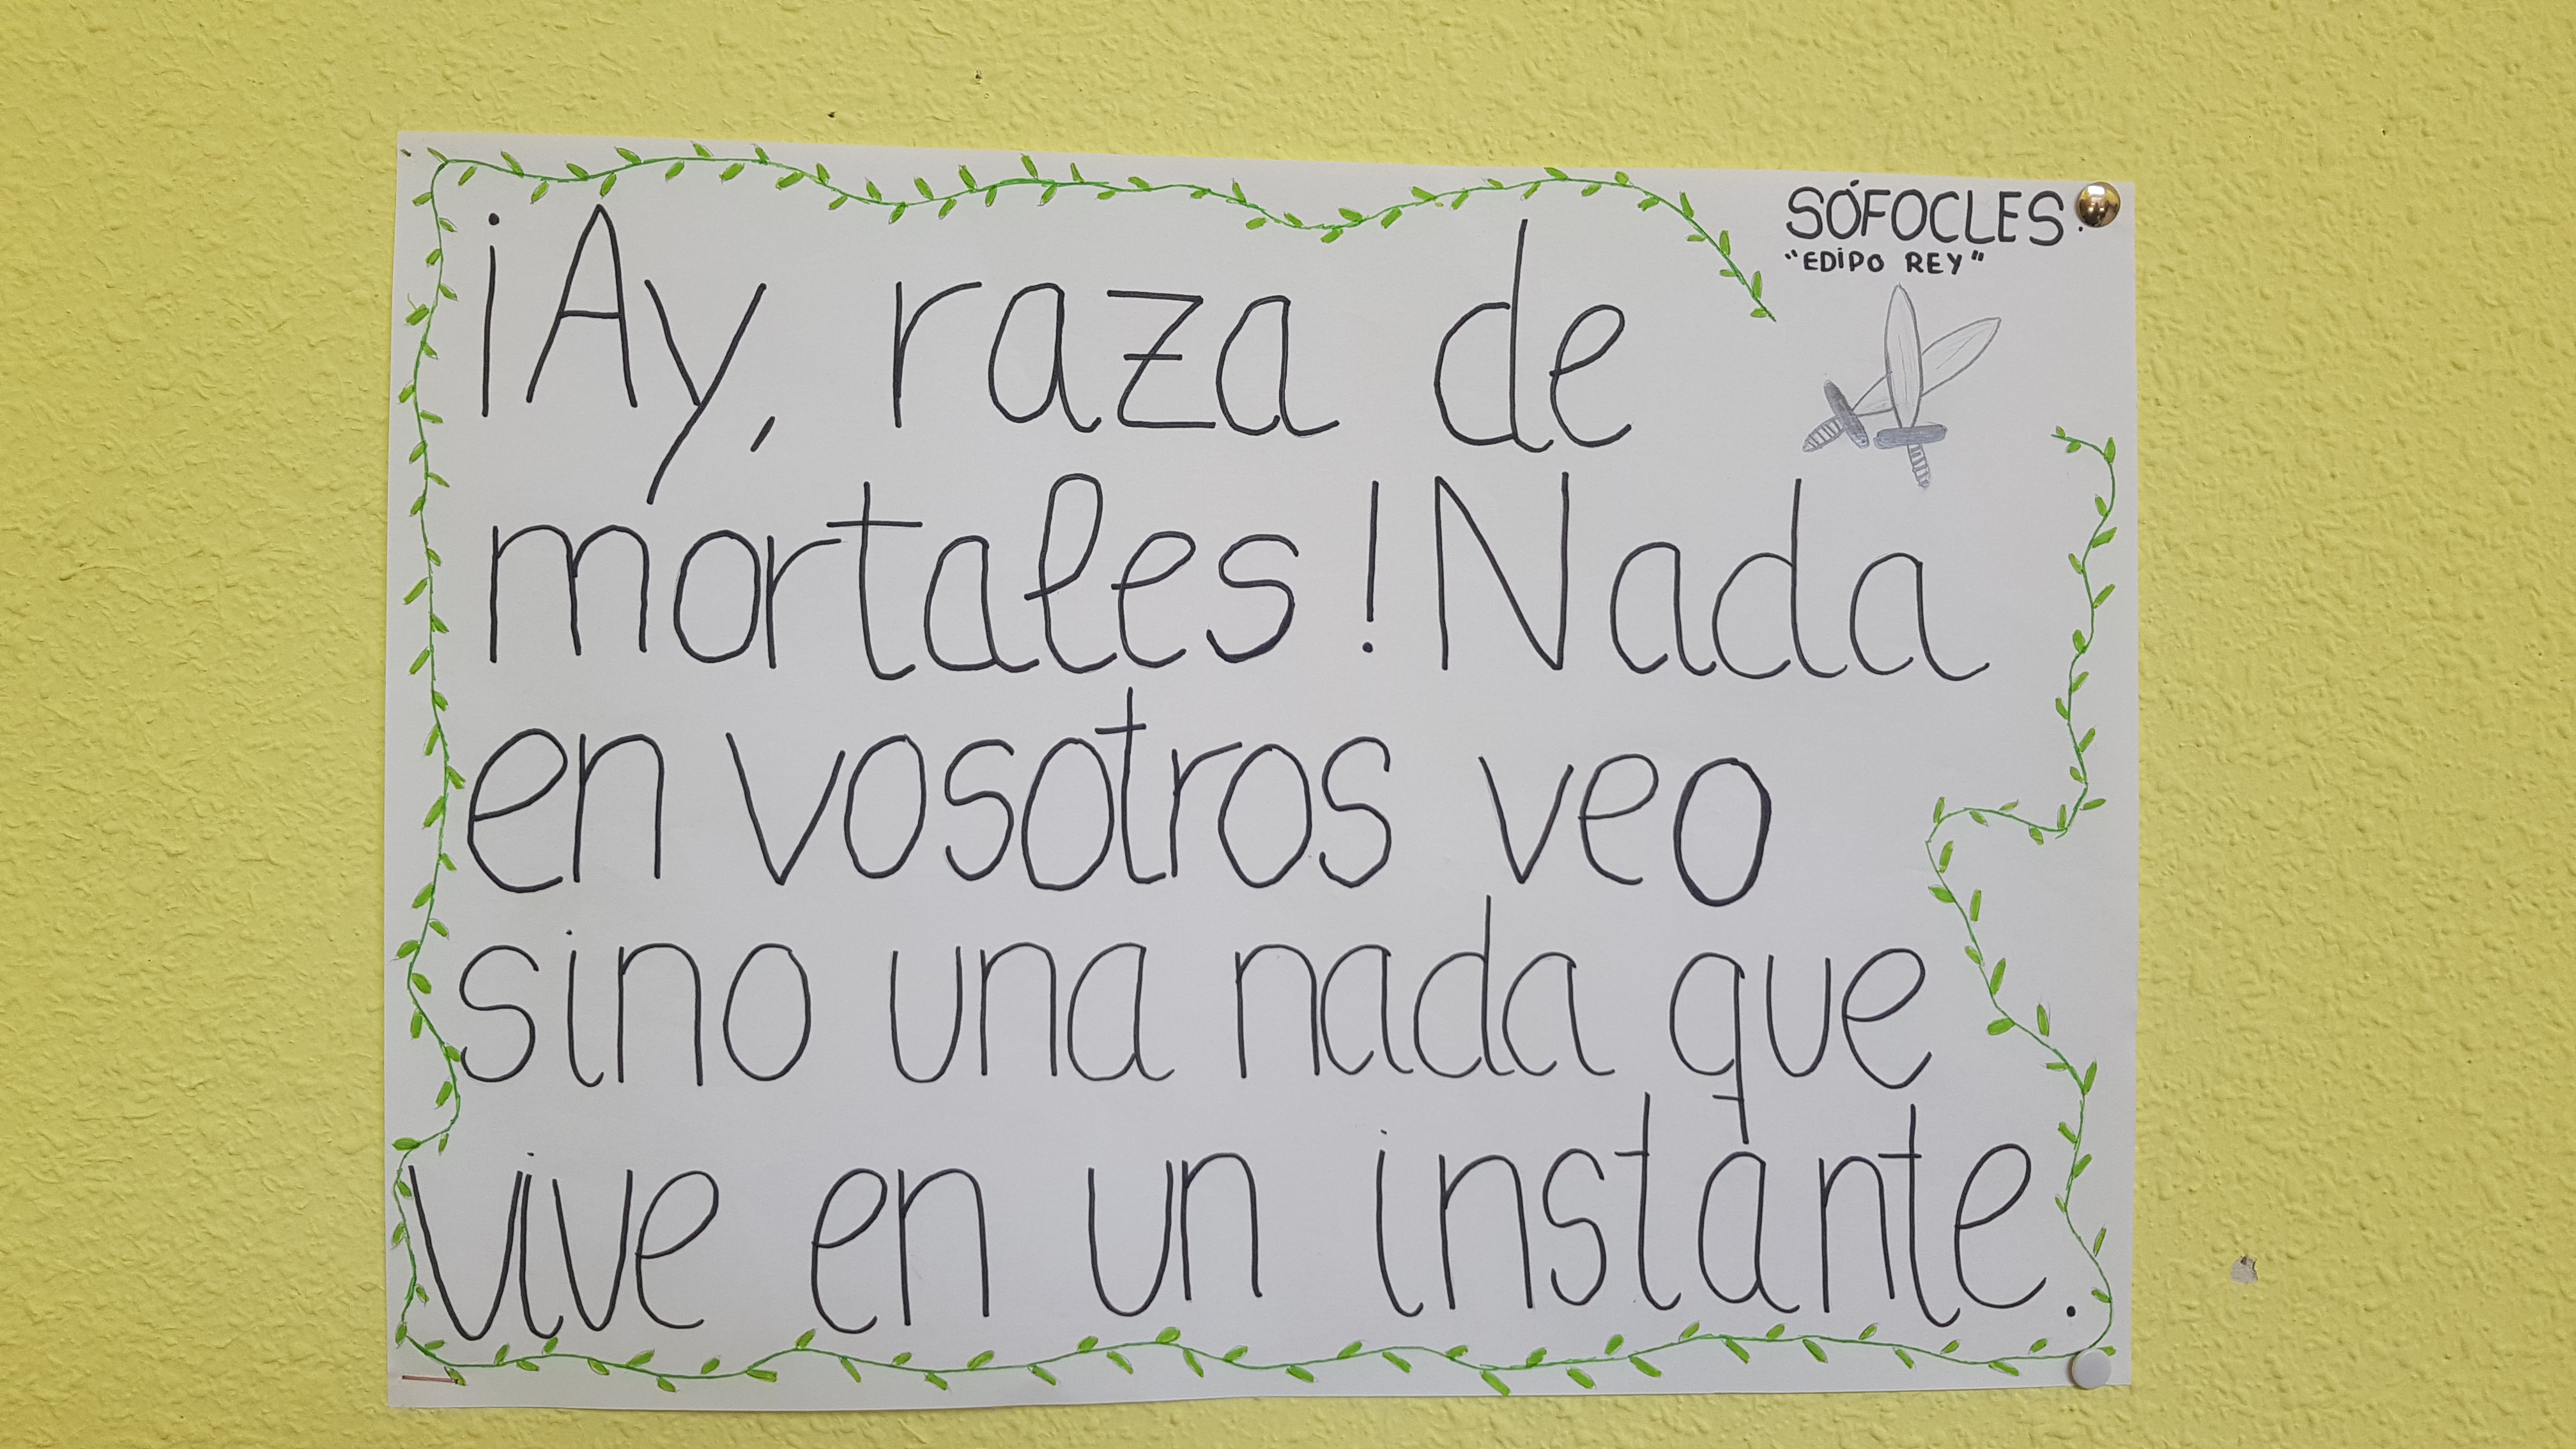 SÓFOCLES.
"EDIPO REY"
¡Ay, raza de
mortales! Nada
en vosotros veo
sino una nada que
vive en un instante.